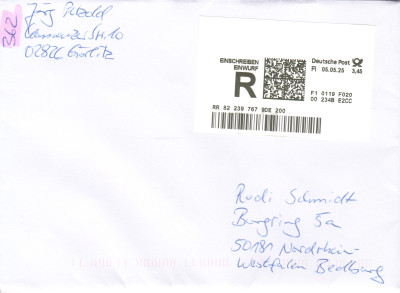 362
Jörg
Str. 10
02826 Görlitz
EINSCHREIBEN
EINWURF
R
Deutsche Post
FI 05.05.25 3,45
F1 0119 F020
00 234B E2CC
RR 82 239 767 9DE 200
Rudi Schmidt
Burgring 5a
50181 Nordrhein-
Westfalen Bedburg